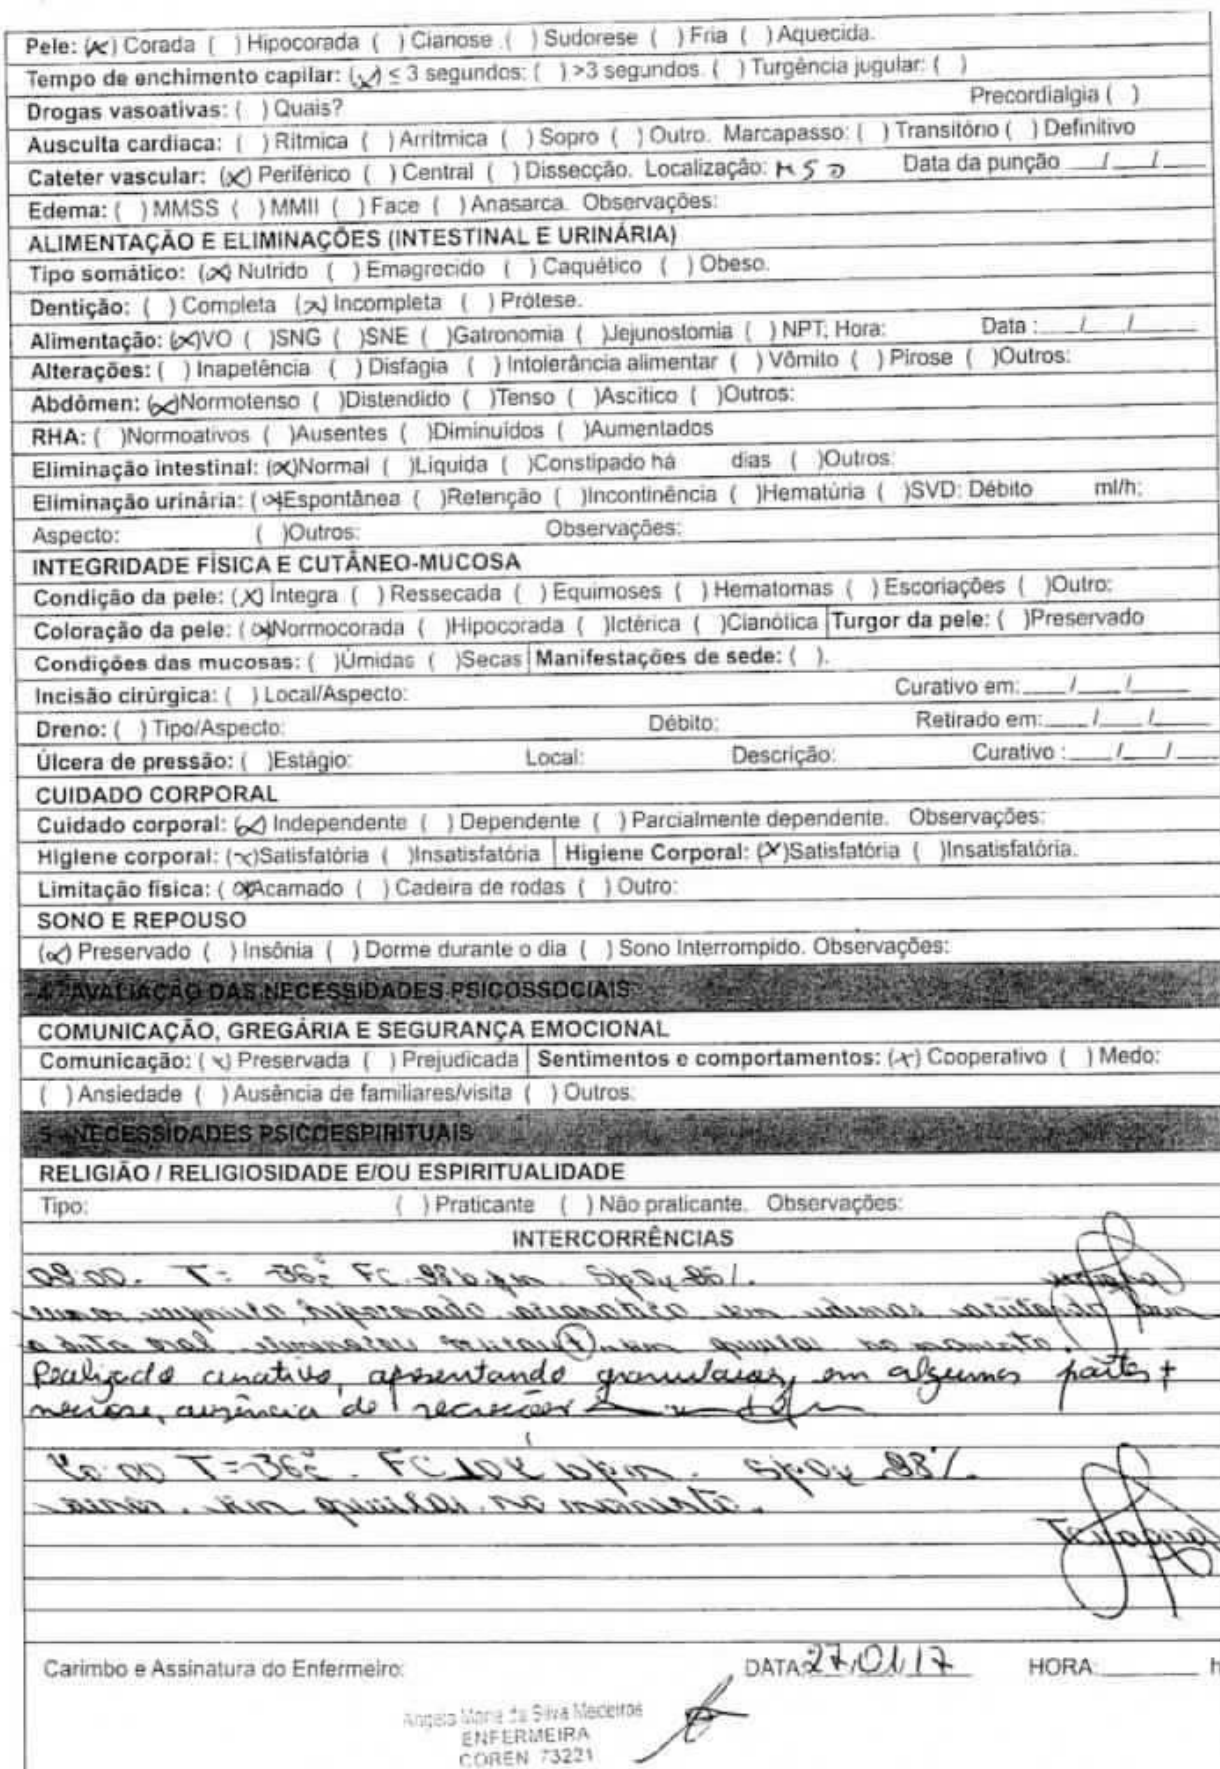 Pele: (x) Corada ( ) Hipocorada ( ) Cianose ( ) Sudorese ( ) Fria ( ) Aquecida.
Tempo de enchimento capilar: (x) ≤ 3 segundos: ( ) >3 segundos. ( ) Turgência jugular: ( )
Drogas vasoativas: ( ) Quais? Precordialgia ( )
Ausculta cardiaca: ( ) Rítmica ( ) Arrítmica ( ) Sopro ( ) Outro. Marcapasso: ( ) Transitório ( ) Definitivo
Cateter vascular: (x) Periférico ( ) Central ( ) Dissecção. Localização: MSD Data da punção ___/___/___
Edema: ( ) MMSS ( ) MMII ( ) Face ( ) Anasarca. Observações:
ALIMENTAÇÃO E ELIMINAÇÕES (INTESTINAL E URINÁRIA)
Tipo somático: (x) Nutrido ( ) Emagrecido ( ) Caquético ( ) Obeso.
Dentição: ( ) Completa (x) Incompleta ( ) Prótese.
Alimentação: (x)VO ( )SNG ( )SNE ( )Gatronomia ( )Jejunostomia ( ) NPT; Hora: Data : ___/___/___
Alterações: ( ) Inapetência ( ) Disfagia ( ) Intolerância alimentar ( ) Vômito ( ) Pirose ( )Outros:
Abdômen: (x)Normotenso ( )Distendido ( )Tenso ( )Ascitico ( )Outros:
RHA: ( )Normoativos ( )Ausentes ( )Diminuídos ( )Aumentados
Eliminação intestinal: (x)Normal ( )Líquida ( )Constipado há dias ( )Outros:
Eliminação urinária: (x)Espontânea ( )Retenção ( )Incontinência ( )Hematúria ( )SVD: Débito ml/h;
Aspecto: ( )Outros: Observações:
INTEGRIDADE FÍSICA E CUTÂNEO-MUCOSA
Condição da pele: (X) Íntegra ( ) Ressecada ( ) Equimoses ( ) Hematomas ( ) Escoriações ( )Outro:
Coloração da pele: (x)Normocorada ( )Hipocorada ( )Ictérica ( )Cianótica Turgor da pele: ( )Preservado
Condições das mucosas: ( )Úmidas ( )Secas Manifestações de sede: ( ).
Incisão cirúrgica: ( ) Local/Aspecto: Curativo em: ___/___/___
Dreno: ( ) Tipo/Aspecto: Débito: Retirado em: ___/___/___
Úlcera de pressão: ( )Estágio: Local: Descrição: Curativo : ___/___/___
CUIDADO CORPORAL
Cuidado corporal: (x) Independente ( ) Dependente ( ) Parcialmente dependente. Observações:
Higiene corporal: (x)Satisfatória ( )Insatisfatória Higiene Corporal: (X)Satisfatória ( )Insatisfatória.
Limitação física: (x)Acamado ( ) Cadeira de rodas ( ) Outro:
SONO E REPOUSO
(x) Preservado ( ) Insônia ( ) Dorme durante o dia ( ) Sono Interrompido. Observações:
4 - AVALIAÇÃO DAS NECESSIDADES PSICOSSOCIAIS
COMUNICAÇÃO, GREGÁRIA E SEGURANÇA EMOCIONAL
Comunicação: (x) Preservada ( ) Prejudicada Sentimentos e comportamentos: (x) Cooperativo ( ) Medo:
( ) Ansiedade ( ) Ausência de familiares/visita ( ) Outros:
5 - NECESSIDADES PSICOESPIRITUAIS
RELIGIÃO / RELIGIOSIDADE E/OU ESPIRITUALIDADE
Tipo: ( ) Praticante ( ) Não praticante. Observações:
INTERCORRÊNCIAS
T= 36c FC 98 bpm. SpO2
a dieta oral (+) sem queixas no momento.
Realizado curativo, apresentando em algumas partes +
necrose, ausência de
T=36c. FC bpm. SpO2 98%
sem queixas no momento.
Carimbo e Assinatura do Enfermeiro: DATA: 27/01/17 HORA: ______ h
Angela Maria da Silva Medeiros
ENFERMEIRA
COREN 73221